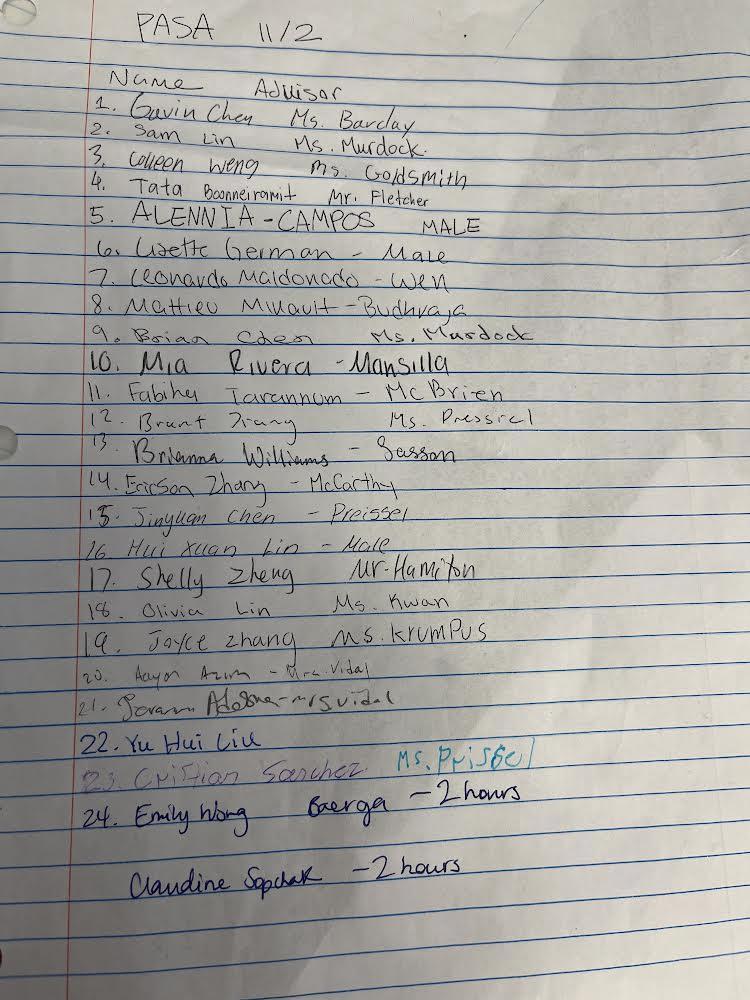 PASA 11/2
Name Advisor
1. Gavin Chen Ms. Barclay
2. Sam Lin Ms. Murdock.
3. Colleen Weng Ms. Goldsmith
4. Tata Boonneiramit Mr. Fletcher
5. ALENNIA-CAMPOS MALE
6. Lisette German - Male
7. Leonardo Maldonado - Wen
8. Mathieu Minault - Budhraja
9. Brian Chen Ms. Murdock
10. Mia Rivera - Mansilla
11. Fabiha Tarannum - McBrien
12. Ms.
13. Brianna Williams - Sasson
14. Ericson Zhang - McCarthy
15. Jinyuan Chen - Preissel
16 Hui Xuan Lin - Male
17. Shelly Zheng Mr. Hamilton
18. Olivia Lin Ms. Kwan
19. Joyce Zhang Ms. Krumpus
20. Aayon Azim - Vidal
21. - Mrs Vidal
22. Yu Hui Liu
23. Cristian Sanchez Ms. Prissel
24. Emily Wong Baerga - 2 hours
Claudine Sopchak - 2 hours